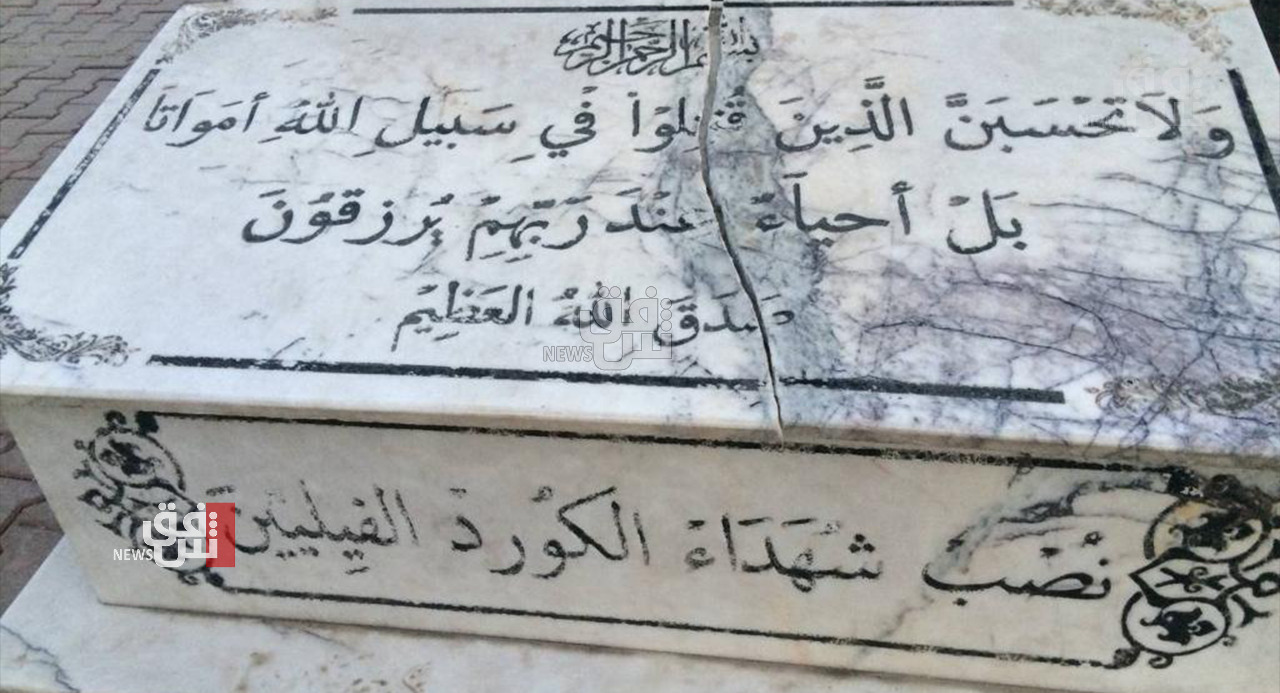 بسم الله الرحمن الرحيم
وَلاَ تَحْسَبَنَّ الَّذِينَ قُتِلُوْا فِي سَبِيلِ اللهِ أَمَوَاتَا
بَلْ أَحيَاءُ عِنْدَ رَبِّهِمْ يُرزقُوْنَ
صَدَقَ اللهُ العَظِيْمْ
شفق
NEWS
نُصْبْ شُهَدَاءْ الكُورْدْ الفِيلِيِينْ
شفق
NEWS